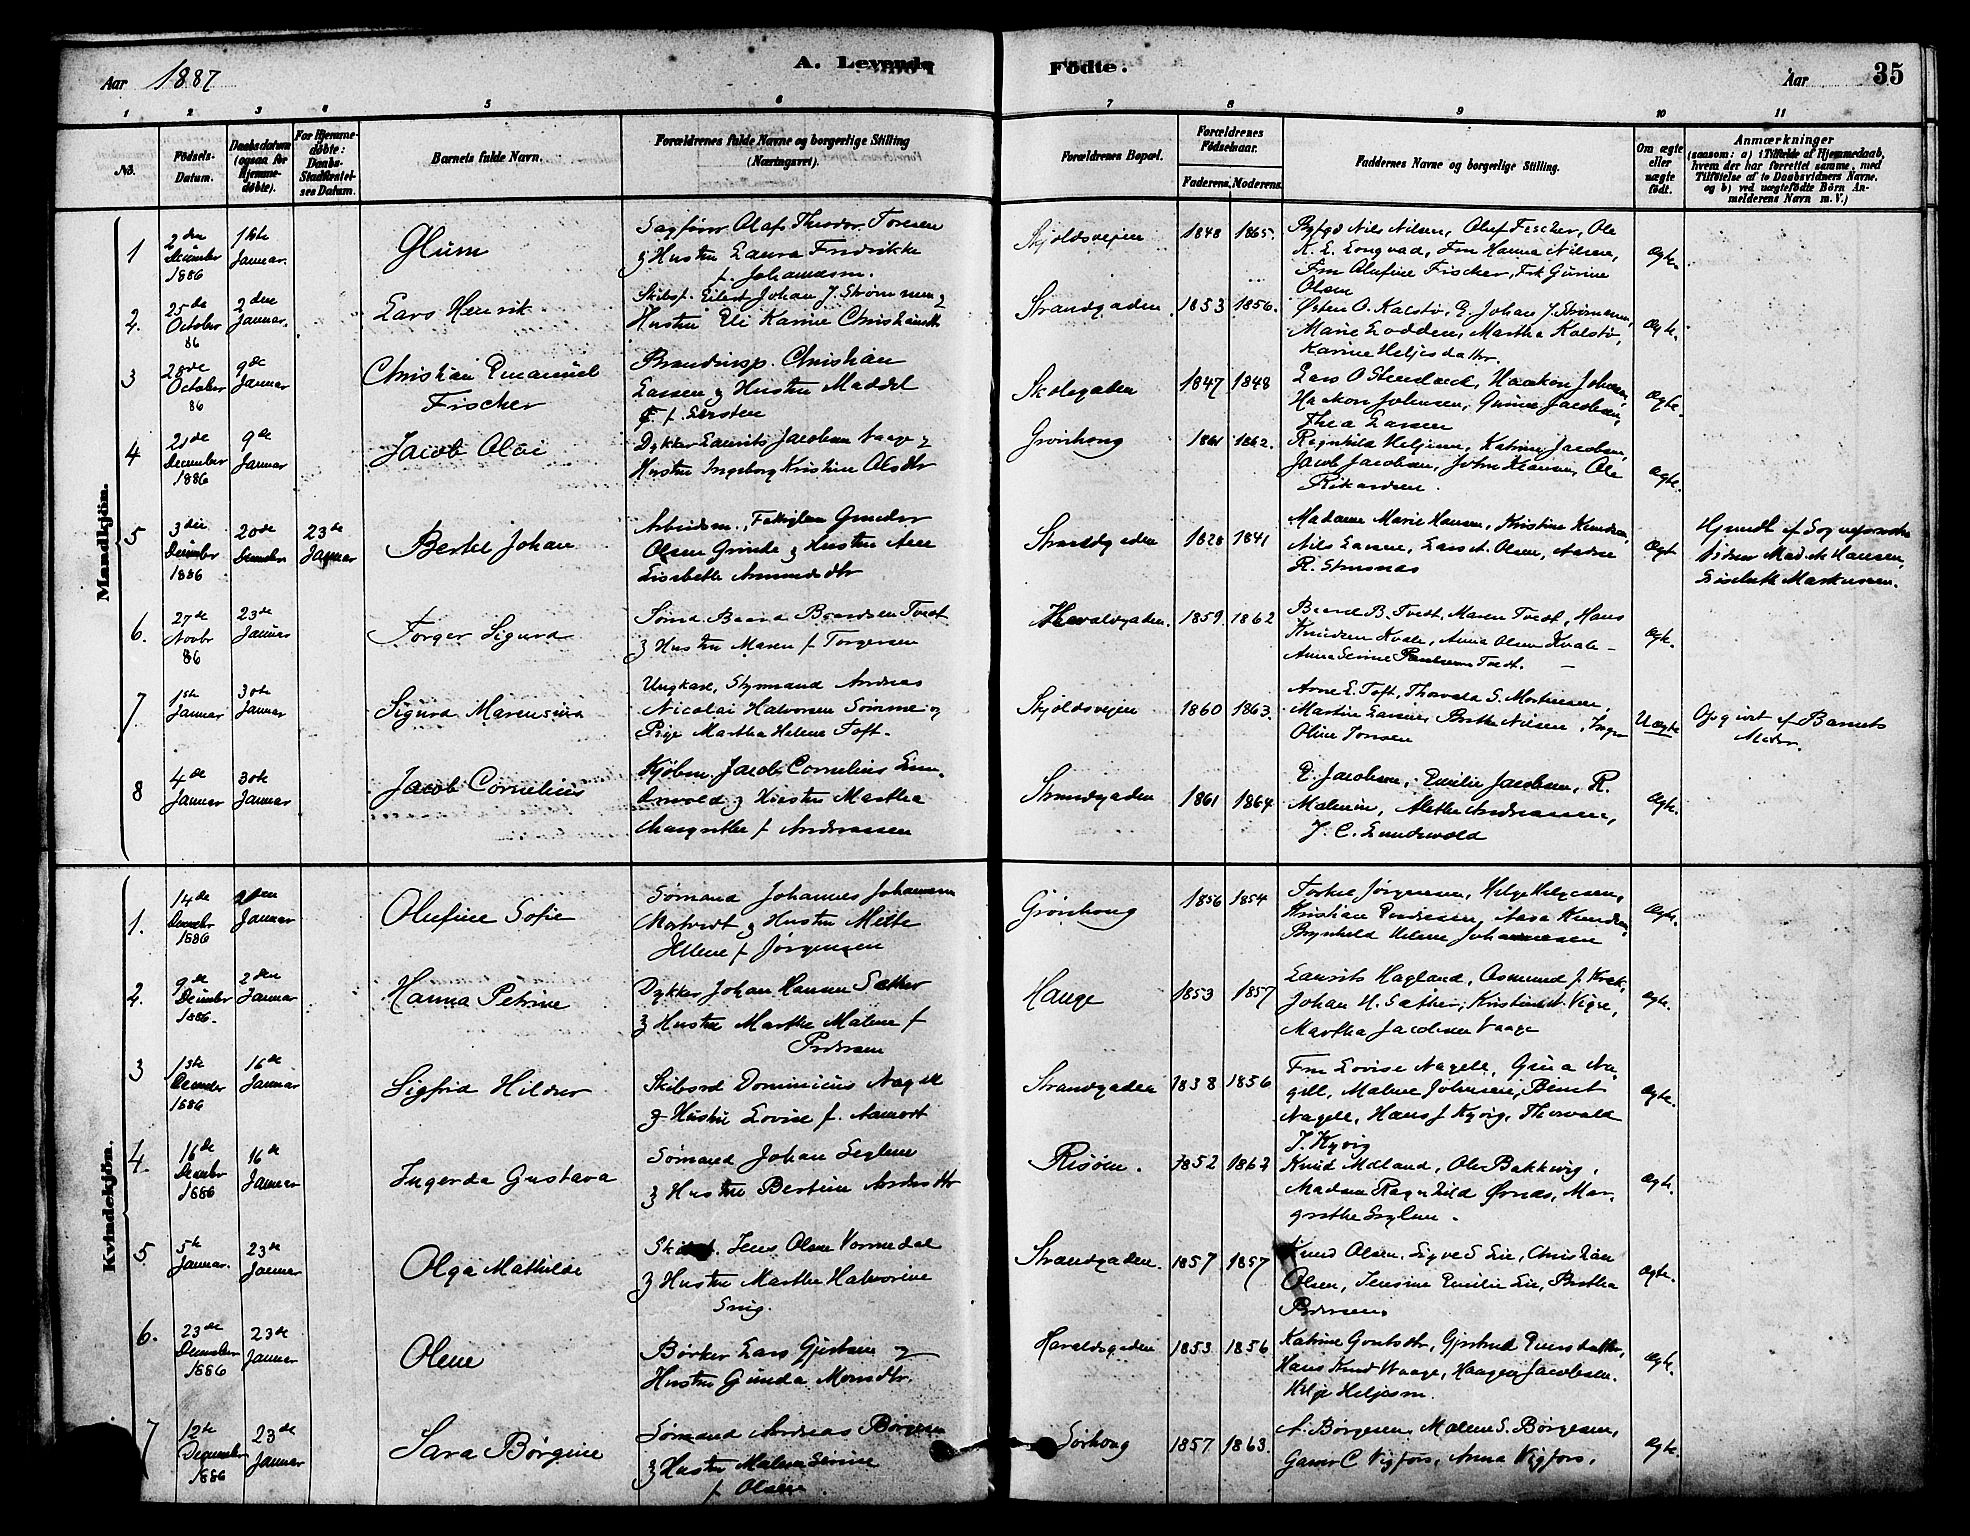 Aar 1887
A. Levende
Födte.
Aar
35
1 2 3 4 5 6 7 8 9 10 11
No.
Födsels-
Datum.
Daabsdatum
(ogsaa for
Hjemme-
döbte).
For Hjemme-
döbte:
Daabs-
Stadfæstel-
ses Datum.
Barnets fulde Navn.
Forældrenes fulde Navne og borgerlige Stilling
(Næringsvei).
Forældrenes Bopæl.
Forældrenes
Födselsaar.
Faderens. Moderens.
Faddernes Navne og borgerlige Stilling.
Om ægte
eller
uægte
födt.
Anmærkninger
(saasom: a) i Tilfælde af Hjemmedaab,
hvem der har forrettet samme, med
Tilföielse af to Daabsvidners Navne,
og b) ved uægtefödte Börn An-
melderens Navn m. V.)
Mandkjön.
1
2den
December
1886
1ste
Januar.
Glüm
Sagfører Olaf Theodor Toresen
& Hustru Laura Fredrikke
f. Johannesen.
Skjoldsveien
1848 1865.
Nils Nilsen, Oluf Fischer, Ole
K. E. Longvad, Fru Hanna Nilsen,
Fru Olufine Fischer, Frk Gurine
Olsen
Ægte.
2.
25de
October
86
2den
Januar.
Lars Henrik
Skibsf. Eilert Johan J. Strømmen &
Hustru Eli Karine Christiansdtr
Strandgaden
1853 1856.
Østen O. Kalstø, E. Johan J. Strømmen,
Marie Lodden, Martha Kalstø,
Karine Heljesdatter.
Ægte.
3
28de
October
86
9de
Januar
Christian Emanuel
Fischer
Brandinsp. Christian
Lassen & Hustru Maddel
Skolegaden
1847 1848
Haakon Johnsen,
Haakon Johnsen, Gurine Jacobsen,
Thea Lassen
Ægte.
4
21de
December
1886
9de
Januar
Jacob Olai
Dykker Laurits Jacobsen Vaage &
Hustru Ingeborg Kristine Olsdtr
Grønhoug
1861 1862.
Ragnhild Heljesen, Katrine Jacobsen,
Jacob Jacobsen, John Hansen, Ole
Rikardsen.
Ægte.
5
3die
December
1886
20de
December
23de
Januar
Bertel Johan
Arbeidsm., Fattiglem Gunder
Olsen Grinde & Hustru Ane
Lisabeth Amundsdtr
Strandgaden
1828 1841
Madame Marie Hansen, Kristine Knudsen,
Nils Larsen, Lars A. Olsen,
R. Stensnæs
Ægte
Mad. M. Hansen,
Lisebeth Markussen.
6.
27de
Novbr
86
23de
Januar
Torger Sigurd
Sømd Baard Baardsen Tvedt
& Hustru Maren f Torgersen
Haraldsgaden.
1859 1862
Baard B. Tvedt, Maren Tvedt, Hans
Knudsen Kvale, Anna Olsen Kvale –
Anna Serine Paulsen Tvedt. –
Ægte.
7
1ste
Januar
30te
Januar
Sigurd Marensius
Ungkarl, Styrmand Andreas
Nicolai Halvorsen Sømme og
Pige Martha Helene Toft.
Skjoldsveien
1860 1863.
Arne E. Toft, Thorvald S. Mortensen,
Martin Larsen, Berthe Nilsen, Inger
Oline Tonsen
Uægte
Opgivet af Barnets
Moder.
8
4de
Januar
30te
Januar
Jacob Cornelius
Kjøbm. Jacob Cornelius Lun-
dewold & Hustru Martha
Margrethe f Andreassen
Strandgaden
1861 1864
E. Jacobsen, Emilie Jacobsen, R.
Malenius, Alethe Andreassen,
J. C. Lundewold
Ægte.
Kvindekjön.
1.
14de
December
1886
2den
Januar
Olufine Sofie
Sømand Johannes Johannesen
Mortvedt & Hustru Mette
Helene f Jørgensen
Grønhoug
1856 1854
Torkel Jørgensen, Helge Helgesen,
Kristian Endresen, Aasa Knudsen,
Brynhild Helene Johannesen
Ægte.
2.
9de
December
1886.
2den
Januar
Hanna Petrine
Dykker Johan Hansen Sæther
& Hustru Marthe Malene f
Pedersen
Hauge
1853 1857
Laurits Hagland, Osmund J. Krok,
Johan H. Sæther, Kristian N. Vigre,
Martha Jacobsen Vaage
ægte.
3
13de
December
1886
16de
Januar
Sigfrid Hildur
Skibsrd Dominicus Nagell
& Hustru Lovise f. Aamodt
Strandgaden
1838 1856
Fru Lovise Nagell, Guina Na-
gell, Malene Johnsen, Bernt
Nagell, Hans J Kyvig, Thorvald
J. Kyvig
Ægte.
4.
16de
December
1886
16de
Januar
Ingerda Gustava
Sømand Johan Leglene
& Hustru Bertine Andersdtr
Risøen.
1852 1862
Knud Mæland, Ole Bakkevig,
Madsen Ragnhild Ørnæs, Mar-
grethe Leglene.
Ægte.
5
5te
Januar.
23de
Januar
Olga Mathilde
Skibsf. Jens Olsen Vormedal
& Hustru Marthe Halvorine
Snig.
Strandgaden.
1857 1857
Knud Olsen, Sigve S Lie, Christian
Olsen, Jensine Emilie Lie, Bertha
Pedersen.
Ægte.
6.
23de
December
1886
23de
Januar
Olene
Børker Lars Gjertsen og
Hustru Gunda Monsdtr.
Haraldsgaden
1853 1856
Katrine Gautsdtr, Gjertrud Eversdatter,
Hans Knud Waage, Haagen Jacobsen.
Helje Heljesen.
Ægte.
7
12te
December
1886
23de
Januar
Sara Børgine
Sømand Andreas Børgesen
& Hustru Malene Serine
f Olsen.
Sørhoug
1857 1863.
A. Børgesen, Malene S. Børgesen,
Gaver C Vigfors, Anna Vigfors,
Ægte.